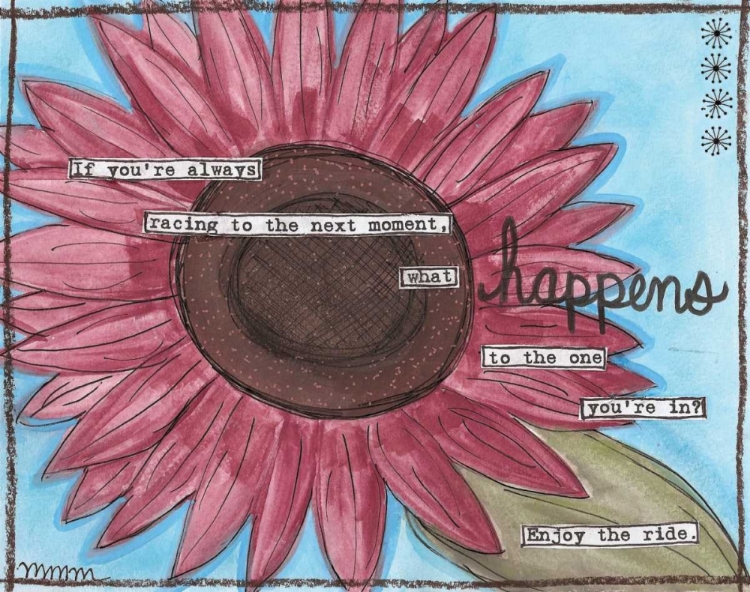 If you're always
racing to the next moment,
what happens
to the one
you're in?
Enjoy the ride.
mmm